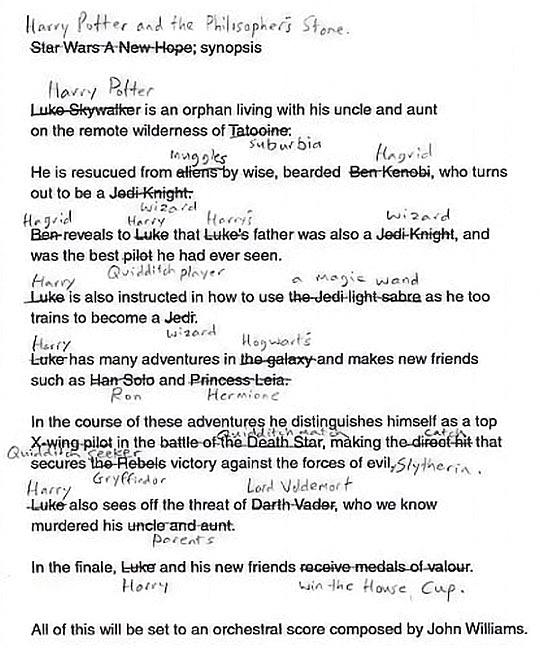 Harry Potter and the Philosopher's Stone.
Star Wars A New Hope; synopsis
Harry Potter
Luke Skywalker is an orphan living with his uncle and aunt
on the remote wilderness of Tatooine.
suburbia
muggles Hagrid
He is resucued from aliens by wise, bearded Ben Kenobi, who turns
out to be a Jedi Knight.
wizard
Hagrid Harry Harry's wizard
Ben reveals to Luke that Luke's father was also a Jedi Knight, and
was the best pilot he had ever seen.
Quidditch player
Harry a magic wand
Luke is also instructed in how to use the Jedi light sabre as he too
trains to become a Jedi.
wizard
Harry Hogwart's
Luke has many adventures in the galaxy and makes new friends
such as Han Solo and Princess Leia.
Ron Hermione
In the course of these adventures he distinguishes himself as a top
Quidditch match catch
X-wing pilot in the battle of the Death Star, making the direct hit that
Quidditch seeker
secures the Rebels victory against the forces of evil, Slytherin.
Gryffindor
Harry Lord Voldemort
Luke also sees off the threat of Darth Vader, who we know
murdered his uncle and aunt.
parents
In the finale, Luke and his new friends receive medals of valour.
Harry win the House Cup.
All of this will be set to an orchestral score composed by John Williams.